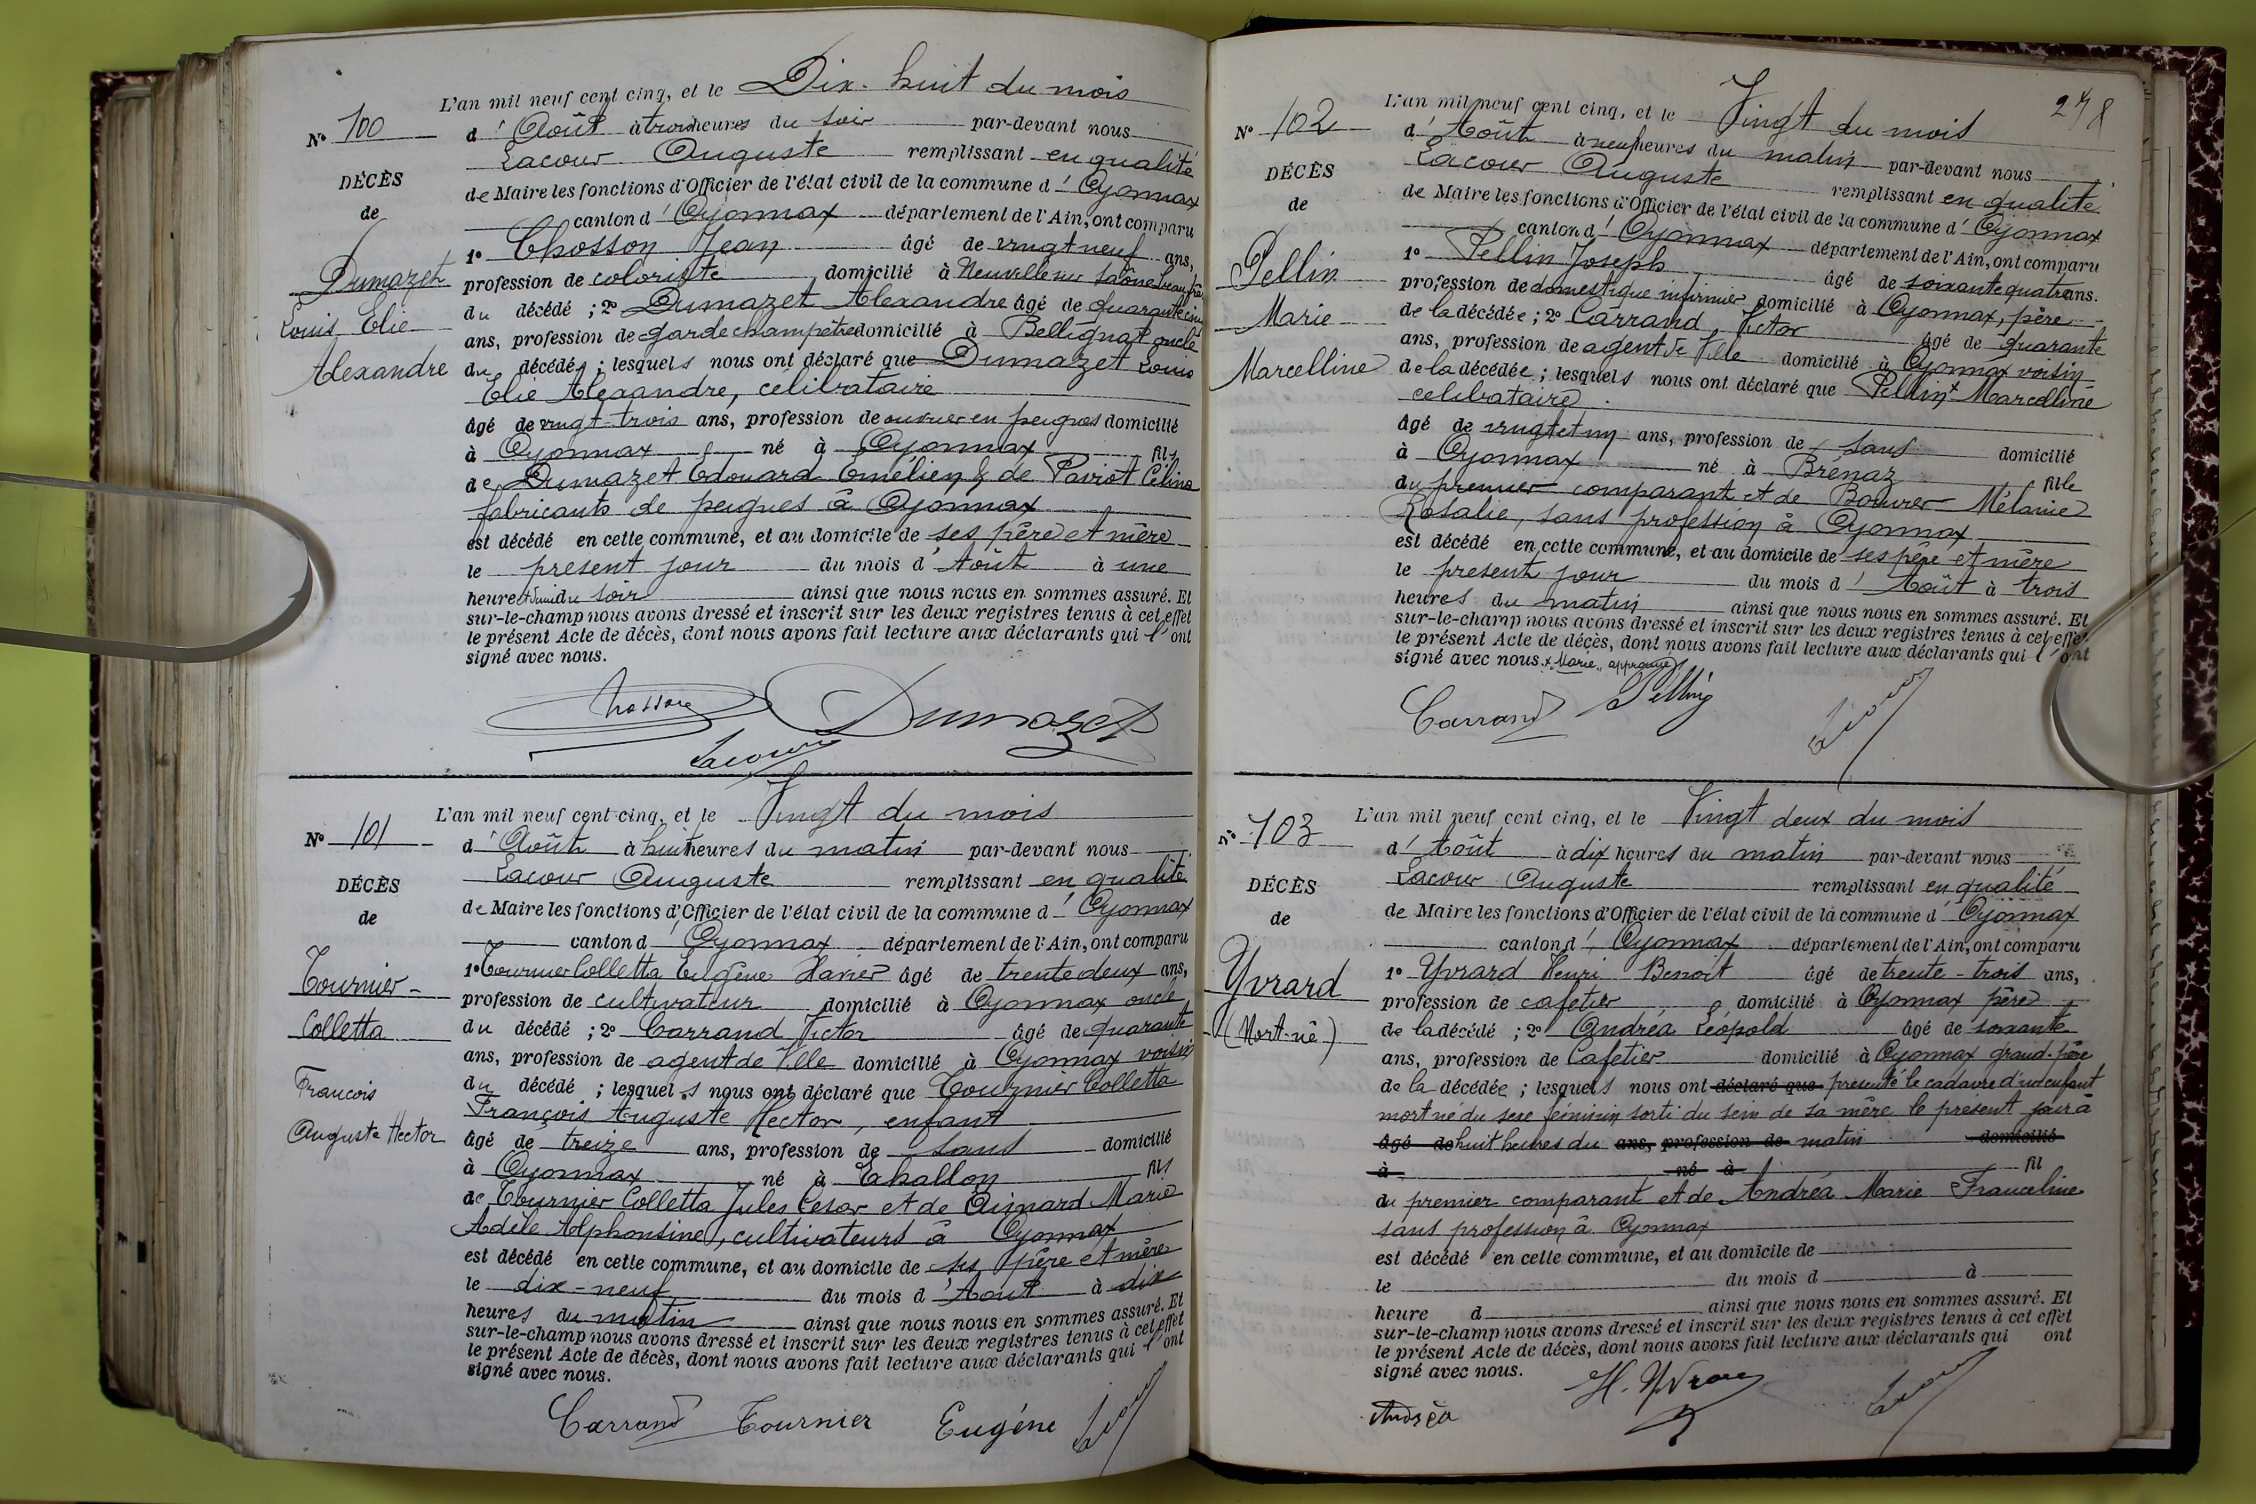 L'an mil neuf cent cinq, et le Dix-huit du mois
N° 100
d'Août à trois heures du soir par-devant nous
Lacour Auguste remplissant en qualité
DÉCÈS
de Maire les fonctions d'Officier de l'état civil de la commune d'Oyonnax
de
canton d'Oyonnax département de l'Ain, ont comparu
1° Chosson Jean âgé de vingt neuf ans,
Dumazet
profession de coloriste domicilié à Neuville sur Saône beau frère
du décédé ; 2° Dumazet Alexandre âgé de quarante cinq
Louis Elie
ans, profession de garde champêtre domicilié à Bellignat oncle
Alexandre
du décédé ; lesquels nous ont déclaré que Dumazet Louis
Elie Alexandre, célibataire
âgé de vingt-trois ans, profession de ouvrier en peignes domicilié
à Oyonnax né à Oyonnax fils
de Dumazet Edouard Emélien & de Pairot Célina
fabricants de peignes à Oyonnax
est décédé en cette commune, et au domicile de ses père et mère
le présent jour du mois d'Août à une
heure et demi du soir ainsi que nous nous en sommes assuré. Et
sur-le-champ nous avons dressé et inscrit sur les deux registres tenus à cet effet
le présent Acte de décès, dont nous avons fait lecture aux déclarants qui l'ont
signé avec nous.
Chosson Dumazet
Lacour
L'an mil neuf cent cinq, et le Vingt du mois
N° 101
d'Août à huit heures du matin par-devant nous
Lacour Auguste remplissant en qualité
DÉCÈS
de Maire les fonctions d'Officier de l'état civil de la commune d'Oyonnax
de
canton d'Oyonnax département de l'Ain, ont comparu
1° Tournier Colletta Eugène Xavier âgé de trente deux ans,
Tournier-
profession de cultivateur domicilié à Oyonnax oncle
Colletta
du décédé ; 2° Carrand Victor âgé de quarante
ans, profession de agent de Ville domicilié à Oyonnax voisin
François
du décédé ; lesquels nous ont déclaré que Tournier Colletta
François Auguste Hector, enfant
Auguste Hector
âgé de treize ans, profession de sans domicilié
à Oyonnax né à Echallon fils
de Tournier Colletta Jules César et de Aimard Marie
Adèle Alphonsine, cultivateurs à Oyonnax
est décédé en cette commune, et au domicile de ses père et mère
le dix-neuf du mois d'Août à dix
heures du matin ainsi que nous nous en sommes assuré. Et
sur-le-champ nous avons dressé et inscrit sur les deux registres tenus à cet effet
le présent Acte de décès, dont nous avons fait lecture aux déclarants qui l'ont
signé avec nous.
Carrand Tournier Eugène Lacour
278
L'an mil neuf cent cinq, et le Vingt du mois
N° 102
d'Août à neuf heures du matin par-devant nous
Lacour Auguste remplissant en qualité
DÉCÈS
de Maire les fonctions d'Officier de l'état civil de la commune d'Oyonnax
de
canton d'Oyonnax département de l'Ain, ont comparu
1° Pellin Joseph âgé de soixante quatre ans.
Pellin
profession de domestique infirmier domicilié à Oyonnax, père
Marie
de la décédée ; 2° Carrand, Victor âgé de quarante
ans, profession de agent de Ville domicilié à Oyonnax voisin
Marcelline
de la décédée ; lesquels nous ont déclaré que Pellin x Marcelline
célibataire
âgé de vingt et un ans, profession de sans domicilié
à Oyonnax né à Brénaz fille
du premier comparant et de Bouvier Mélanie
Rosalie, sans profession à Oyonnax
est décédé en cette commune, et au domicile de ses père et mère
le présent jour du mois d'Août à trois
heures du matin ainsi que nous nous en sommes assuré. Et
sur-le-champ nous avons dressé et inscrit sur les deux registres tenus à cet effet
le présent Acte de décès, dont nous avons fait lecture aux déclarants qui l'ont
signé avec nous. x "Marie" approuvé
Carrand Pellin Lacour
L'an mil neuf cent cinq, et le Vingt deux du mois
N° 103
d'Août à dix heures du matin par-devant nous
Lacour Auguste remplissant en qualité
DÉCÈS
de Maire les fonctions d'Officier de l'état civil de la commune d'Oyonnax
de
canton d'Oyonnax département de l'Ain, ont comparu
Yvrard
1° Yvrard Henri Benoit âgé de trente-trois ans,
profession de cafetier domicilié à Oyonnax père
(Mort-né)
de la décédé ; 2° Andréa Léopold âgé de soixante
ans, profession de Cafetier domicilié à Oyonnax grand-père
de la décédée ; lesquels nous ont déclaré que présenté le cadavre d'un enfant
mort né du sexe féminin sorti du sein de sa mère le présent jour à
âgé de huit heures du ans, profession de matin domicilié
à né à fil
du premier comparant et de Andréa Marie Franceline
sans profession à Oyonnax
est décédé en cette commune, et au domicile de
le du mois d à
heure d ainsi que nous nous en sommes assuré. Et
sur-le-champ nous avons dressé et inscrit sur les deux registres tenus à cet effet
le présent Acte de décès, dont nous avons fait lecture aux déclarants qui ont
signé avec nous.
H. Yvrard Lacour
Andréa